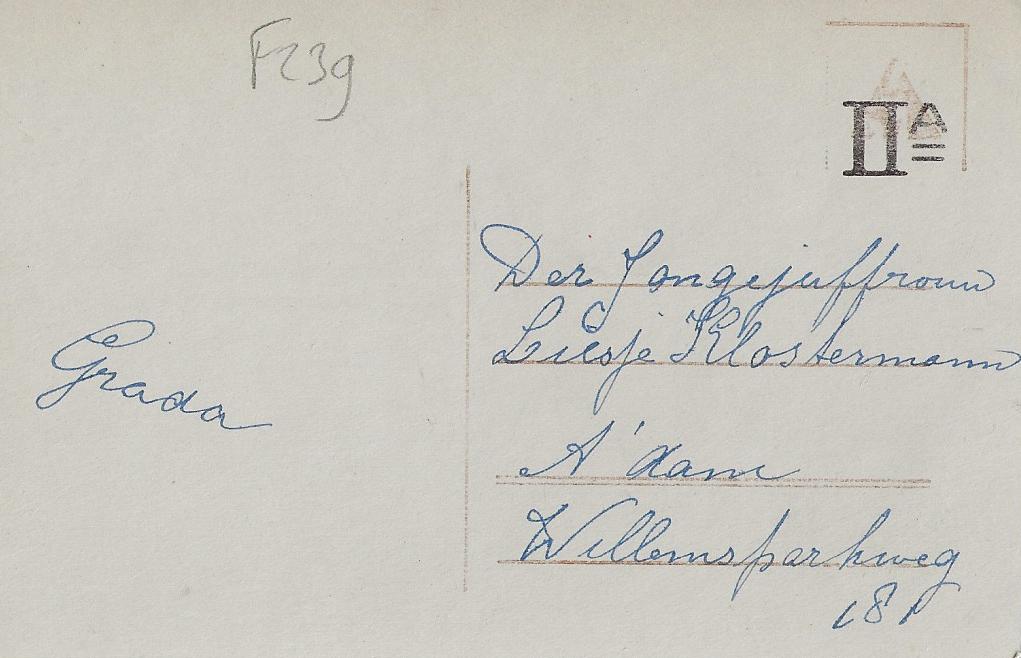 F239
IIA
Der Jongejuffrouw
Liesje Klostermann
Grada
A'dam
Willemsparkweg
181